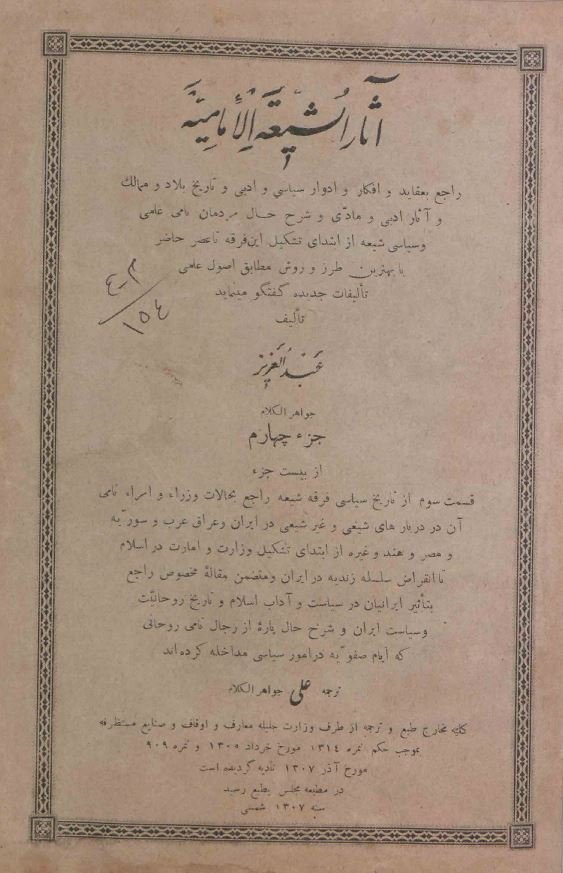 آثار الشیعة الإمامیة
راجع بعقاید و افکار و ادوار سیاسی و ادبی و تاریخ بلاد و ممالک
و آثار ادبی و مادّی و شرح حال مردمان نامی علمی
وسیاسی شیعه از ابتدای تشکیل این فرقه تا عصر حاضر
با بهترین طرز و روش مطابق اصول علمی
تألیفات جدیده گفتگو مینماید
تألیف
عبدالعزیز
جواهر الکلام
جزء چهارم
از بیست جزء
قسمت سوم از تاریخ سیاسی فرقه شیعه راجع بحالات وزراء و امراء نامی
آن در دربار های شیعی و غیر شیعی در ایران وعراق عرب و سوریه
و مصر و هند و غیره از ابتدای تشکیل وزارت و امارت در اسلام
تا انقراض سلسله زندیه در ایران ومتضمن مقالهٔ مخصوص راجع
بتأثیر ایرانیان در سیاست و آداب اسلام و تاریخ روحانیّت
وسیاست ایران و شرح حال پارهٔ از رجال نامی روحانی
که ایام صفویه در امور سیاسی مداخله کرده اند
ترجمه علی جواهر الکلام
کلیه مخارج طبع و ترجمه از طرف وزارت جلیله معارف و اوقاف و صنایع مستظرفه
بموجب حکم نمره ۰۳۱٤ مورخ خرداد ۱۳۰۵ و نمره ۹۰۹
مورخ آذر ۱۳۰۷ تادیه گردیده است
در مطبعه مجلس بطبع رسید
سنه ۱۳۰۷ شمسی
١٥٤